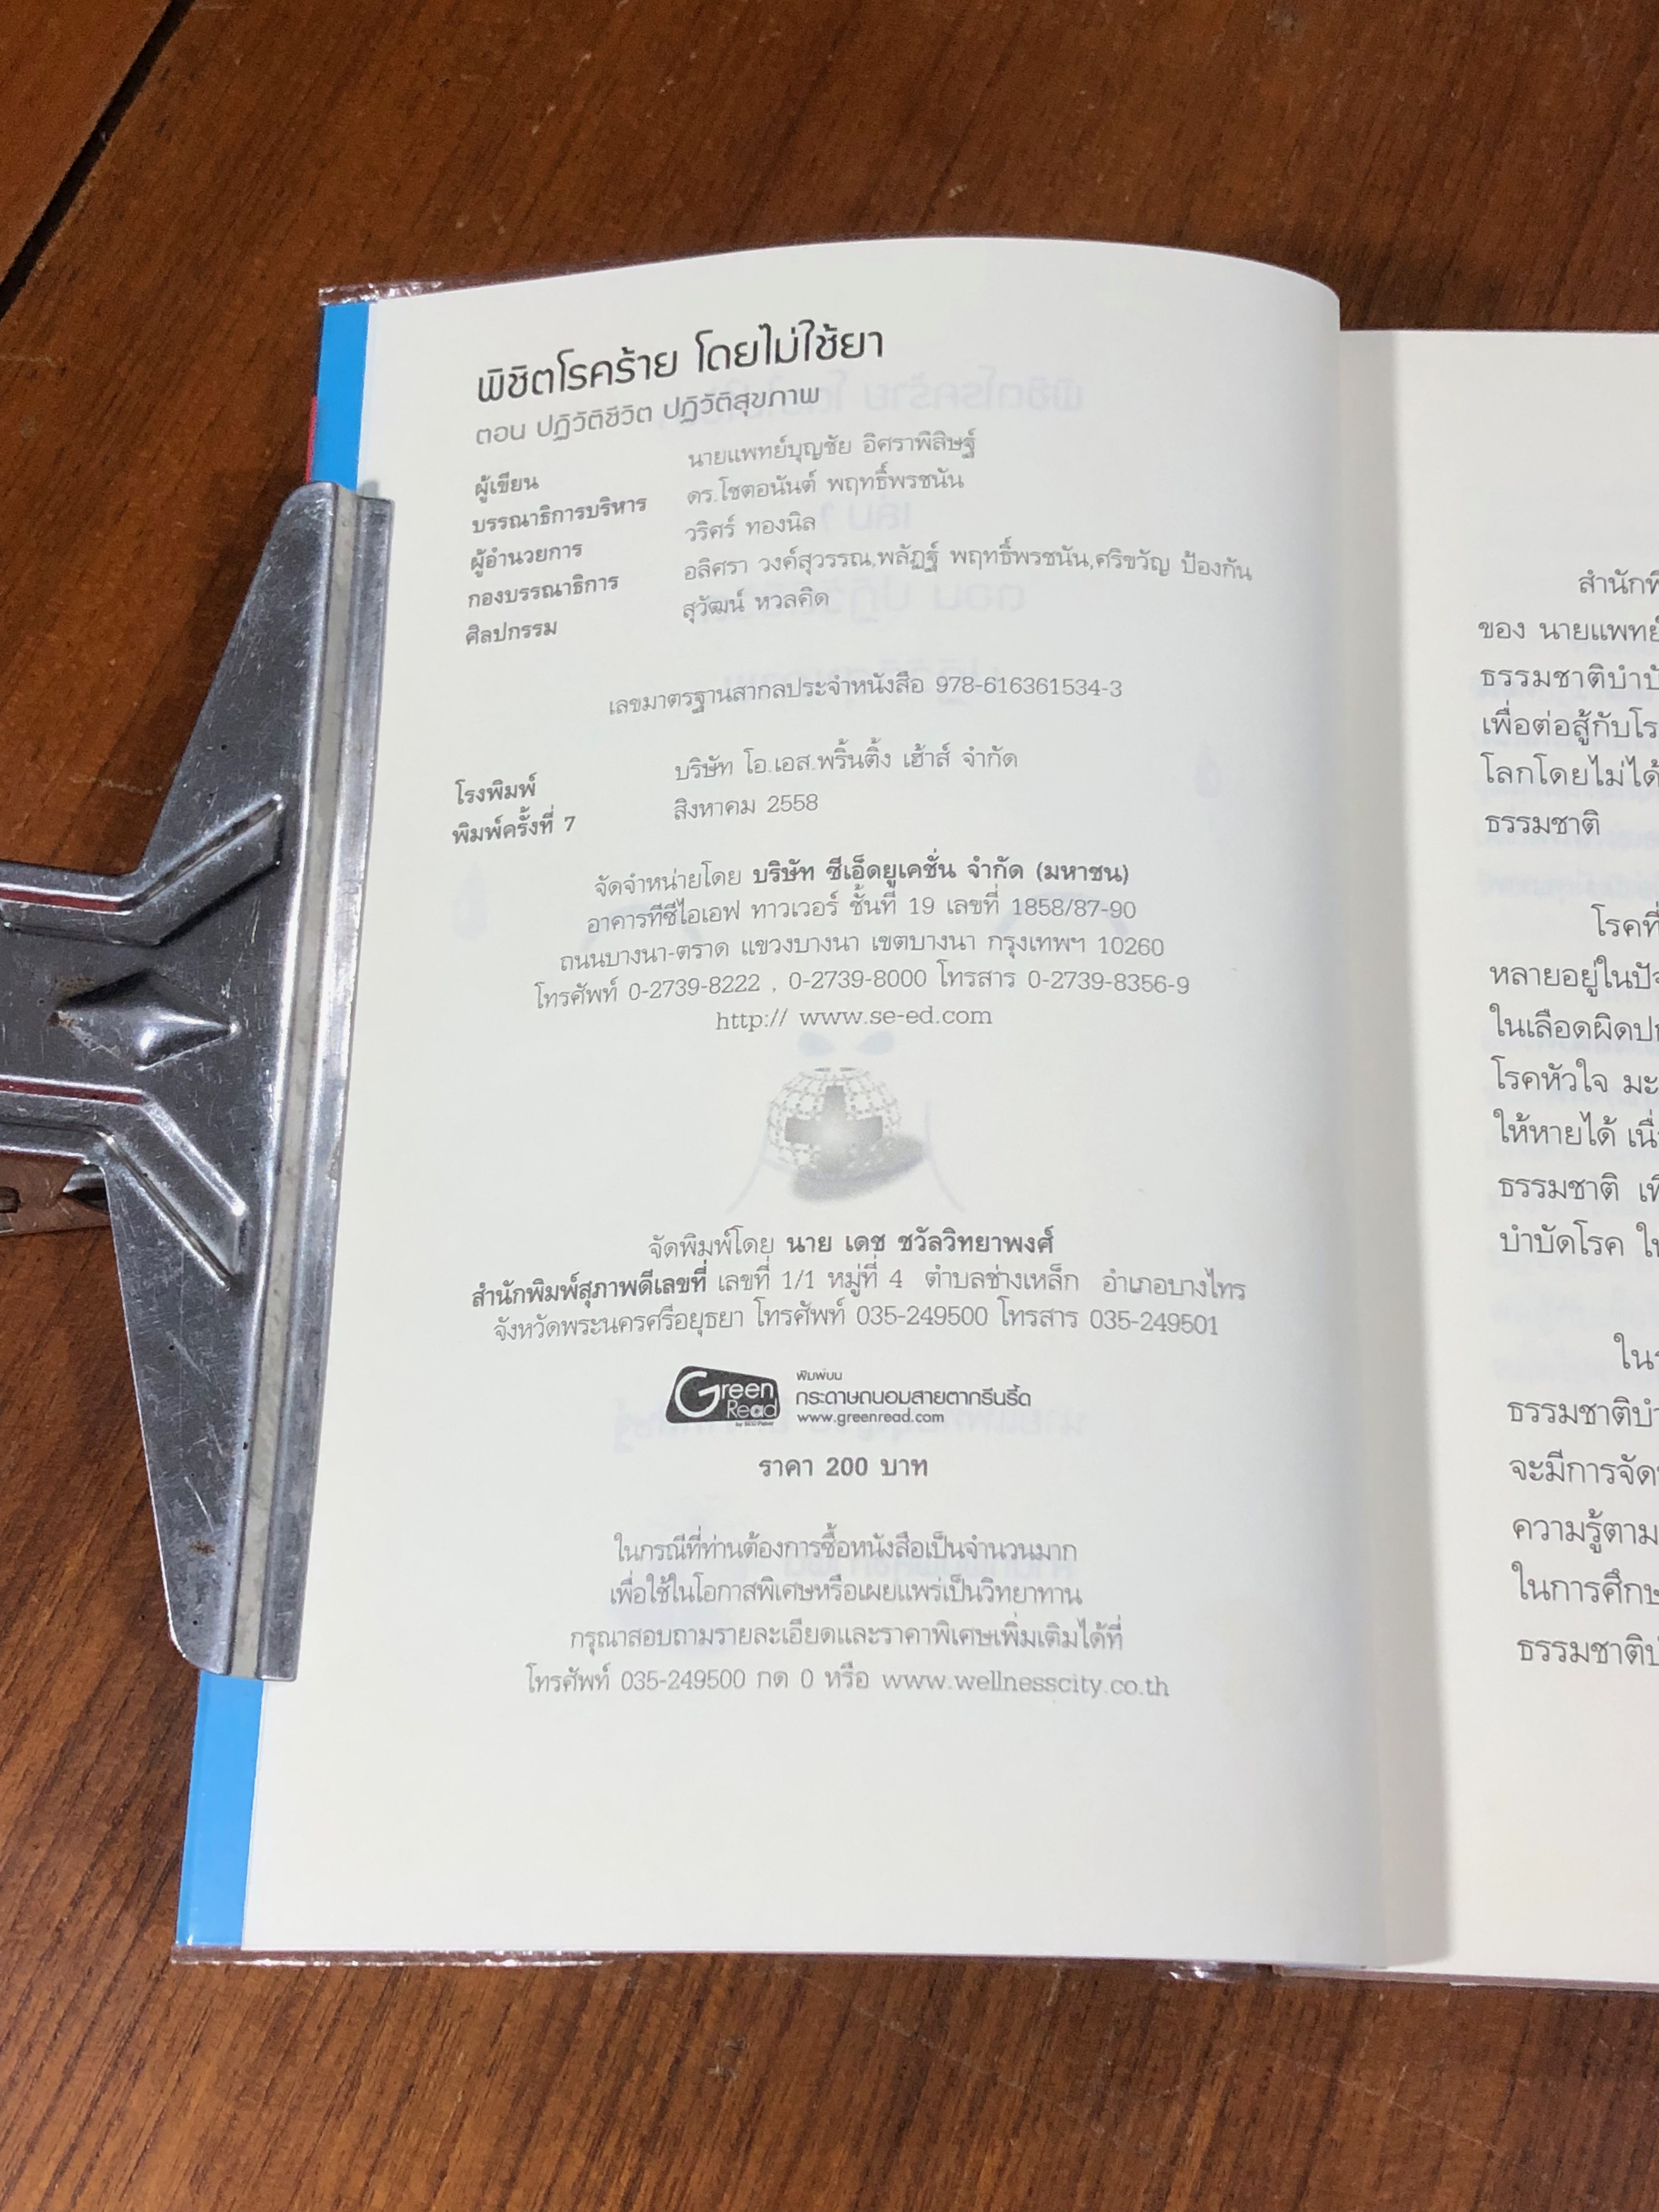 พิชิตโรคร้าย โดยไม่ใช้ยา
ตอน ปฏิวัติชีวิต ปฏิวัติสุขภาพ
ผู้เขียน นายแพทย์บุญชัย อิศราพิสิษฐ์
บรรณาธิการบริหาร ดร.โชตอนันต์ พฤทธิ์พรชนัน
ผู้อำนวยการ วริศร์ ทองนิล
กองบรรณาธิการ อลิศรา วงค์สุวรรณ,พลัฏฐ์ พฤทธิ์พรชนัน,ศริขวัญ ป้องกัน
ศิลปกรรม สุวัฒน์ หวลคิด
เลขมาตรฐานสากลประจำหนังสือ 978-616361534-3
โรงพิมพ์ บริษัท โอ.เอส.พริ้นติ้ง เฮ้าส์ จำกัด
พิมพ์ครั้งที่ 7 สิงหาคม 2558
จัดจำหน่ายโดย บริษัท ซีเอ็ดยูเคชั่น จำกัด (มหาชน)
อาคารทีซีไอเอฟ ทาวเวอร์ ชั้นที่ 19 เลขที่ 1858/87-90
ถนนบางนา-ตราด แขวงบางนา เขตบางนา กรุงเทพฯ 10260
โทรศัพท์ 0-2739-8222 , 0-2739-8000 โทรสาร 0-2739-8356-9
http:// www.se-ed.com
จัดพิมพ์โดย นาย เดช ชวัลวิทยาพงศ์
สำนักพิมพ์สุภาพดีเลขที่ เลขที่ 1/1 หมู่ที่ 4 ตำบลช่างเหล็ก อำเภอบางไทร
จังหวัดพระนครศรีอยุธยา โทรศัพท์ 035-249500 โทรสาร 035-249501
Green Read
พิมพ์บน
กระดาษถนอมสายตากรีนรี้ด
www.greenread.com
ราคา 200 บาท
ในกรณีที่ท่านต้องการซื้อหนังสือเป็นจำนวนมาก
เพื่อใช้ในโอกาสพิเศษหรือเผยแพร่เป็นวิทยาทาน
กรุณาสอบถามรายละเอียดและราคาพิเศษเพิ่มเติมได้ที่
โทรศัพท์ 035-249500 กด 0 หรือ www.wellnesscity.co.th
ของ นายแพทย์
ธรรมชาติบำบั
เพื่อต่อสู้กับโร
โลกโดยไม่ได้
ธรรมชาติ
โรคที่
หลายอยู่ในปัจ
ในเลือดผิดปก
โรคหัวใจ มะ
ให้หายได้ เนื่
ธรรมชาติ เพื
บำบัดโรค ใ
ใน
ธรรมชาติบำ
จะมีการจัด
ความรู้ตาม
ในการศึกษ
ธรรมชาติบ